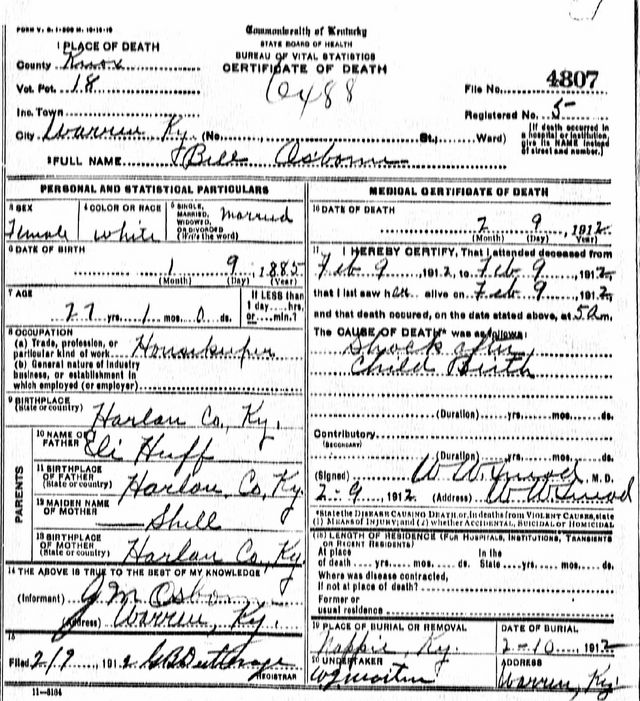 FORM V. S. 1-500 M. 10-18-10
Commonwealth of Kentucky
STATE BOARD OF HEALTH
BUREAU OF VITAL STATISTICS
CERTIFICATE OF DEATH
6488
1 PLACE OF DEATH
County Knox
Vot. Pct. 18
Inc. Town
City Warren Ky. (No. St.; Ward)
File No. 4807
Registered No. 5
[If death occurred in hospital or institution, give its NAME instead of street and number.]
2 FULL NAME Bell Osborne
PERSONAL AND STATISTICAL PARTICULARS
3 SEX Female
4 COLOR OR RACE white
5 SINGLE, MARRIED, WIDOWED, OR DIVORCED (Write the word) Married
6 DATE OF BIRTH
1 9, 1885
(Month) (Day) (Year)
7 AGE
27 yrs. 1 mos. 0 ds.
If LESS than 1 day....hrs. or....min.?
8 OCCUPATION
(a) Trade, profession, or particular kind of work Housekeeper
(b) General nature of industry business, or establishment in which employed (or employer)
9 BIRTHPLACE (State or country) Harlan Co, Ky.
PARENTS
10 NAME OF FATHER Eli Huff
11 BIRTHPLACE OF FATHER (State or country) Harlan, Co, Ky
12 MAIDEN NAME OF MOTHER Shell
13 BIRTHPLACE OF MOTHER (State or country) Harlan Co, Ky
14 THE ABOVE IS TRUE TO THE BEST OF MY KNOWLEDGE
(Informant) J M Osborn
(Address) Warren, Ky.
15
Filed 2/9, 1912
REGISTRAR
11-5184
MEDICAL CERTIFICATE OF DEATH
16 DATE OF DEATH
2 9, 1912
(Month) (Day) (Year)
17 I HEREBY CERTIFY, That I attended deceased from
Feb 9, 1912, to Feb 9, 1912
that I last saw her alive on Feb 9, 1912
and that death occured, on the date stated above, at 5 am.
The CAUSE OF DEATH* was as follows:
Shock after
Child Birth
(Duration) yrs. mos. ds.
Contributory (SECONDARY)
(Duration) yrs. mos. ds.
(Signed) W W M. D.
2-9 1912 (Address) W W
*State the DISEASE CAUSING DEATH, or, in deaths from VIOLENT CAUSES, state
(1) MEANS OF INJURY; and (2) whether ACCIDENTAL, SUICIDAL or HOMICIDAL
(18) LENGTH OF RESIDENCE (FOR HOSPITALS, INSTITUTIONS, TRANSIENTS OR RECENT RESIDENTS)
At place of death yrs. mos. ds. In the State yrs. mos. ds.
Where was disease contracted, if not at place of death?
Former or usual residence
19 PLACE OF BURIAL OR REMOVAL
Ky.
DATE OF BURIAL
2-10, 1912
20 UNDERTAKER
ADDRESS
Warren, Ky